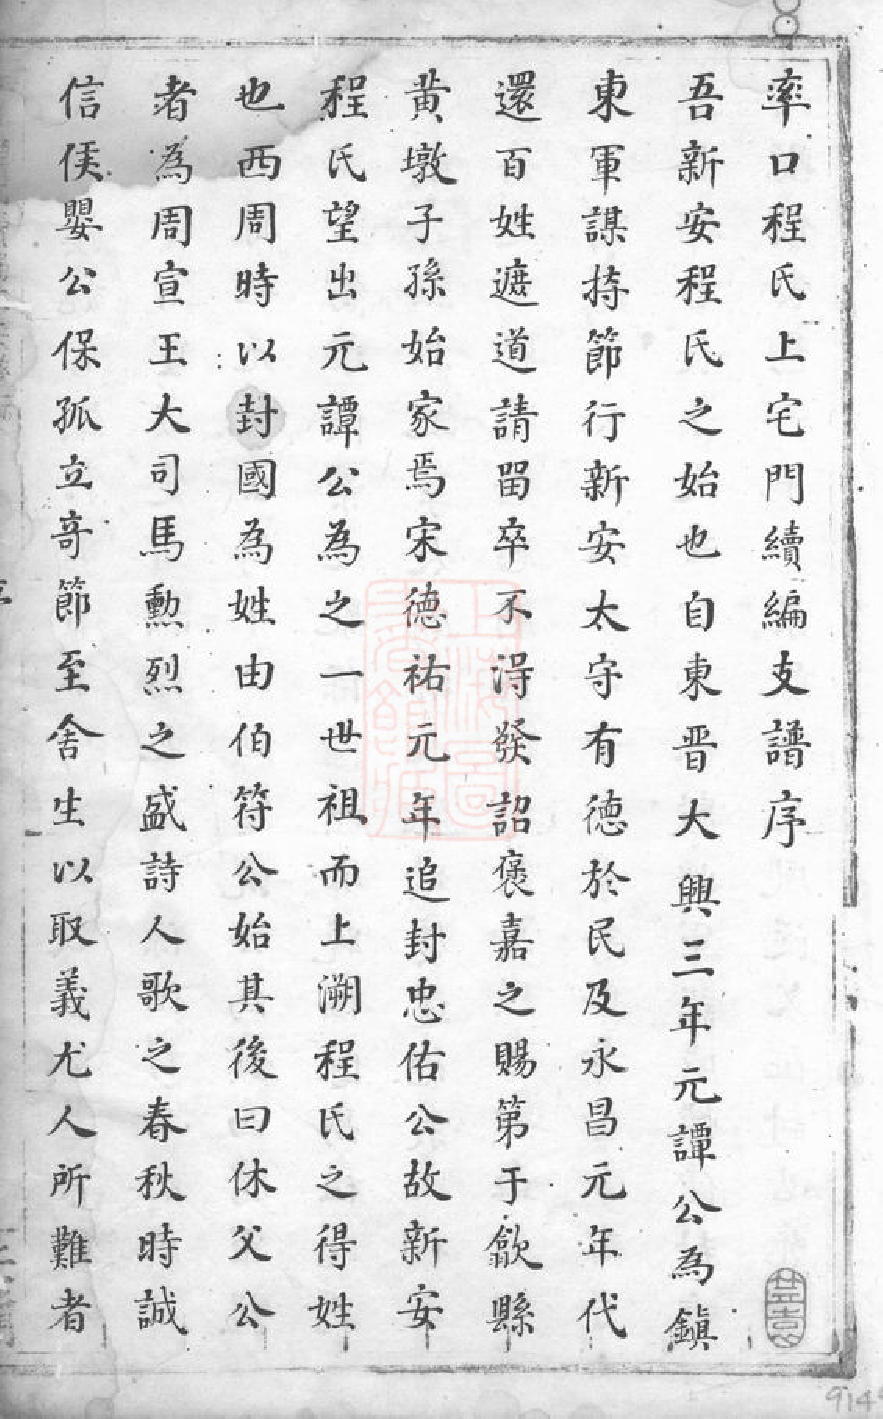 率口程氏上宅門續編支譜序
吾新安程氏之始也自東晋大興三年元譚公為鎮
東軍謀持節行新安太守有德於民及永昌元年代
還百姓遮道請留卒不淂發詔褒嘉之賜第于歙縣
黄墩子孫始家焉宋德祐元年追封忠佑公故新安
程氏望出元譚公為之一世祖而上溯程氏之得姓
也西周時以封國為姓由伯符公始其後曰休父公
者為周宣王大司馬勲烈之盛詩人歌之春秋時誠
信侯嬰公保孤立竒節至舍生以取義尤人所難者
上海圖書館藏
914